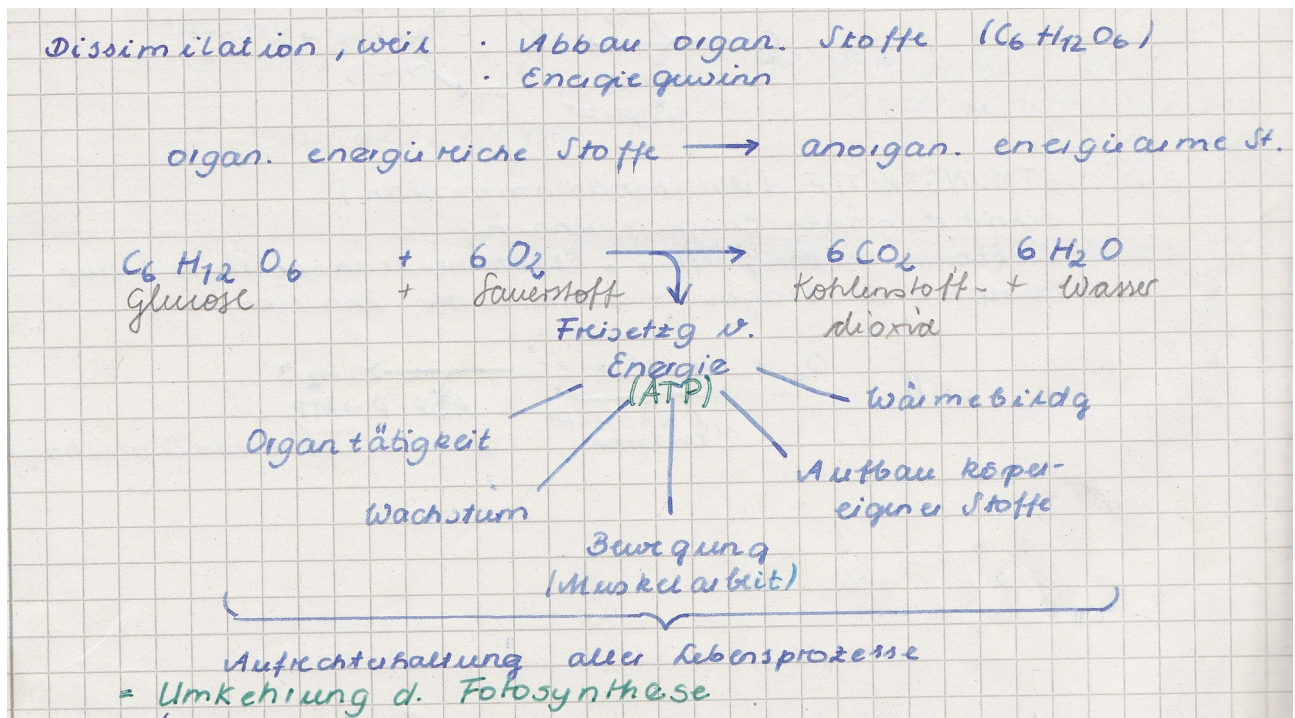 Dissimilation, weil · Abbau organ. Stoffe (C₆H₁₂O₆)
· Energiegewinn
organ. energiereiche Stoffe → anorgan. energiearme St.
C₆H₁₂O₆ + 6 O₂ → 6 CO₂ 6 H₂O
Glucose + Sauerstoff Kohlenstoff- + Wasser
dioxid
Freisetzg v.
Energie
(ATP)
Wärmebildg
Organtätigkeit
Aufbau körper-
eigener Stoffe
Wachstum
Bewegung
(Muskelarbeit)
Aufrechterhaltung aller Lebensprozesse
= Umkehrung d. Fotosynthese